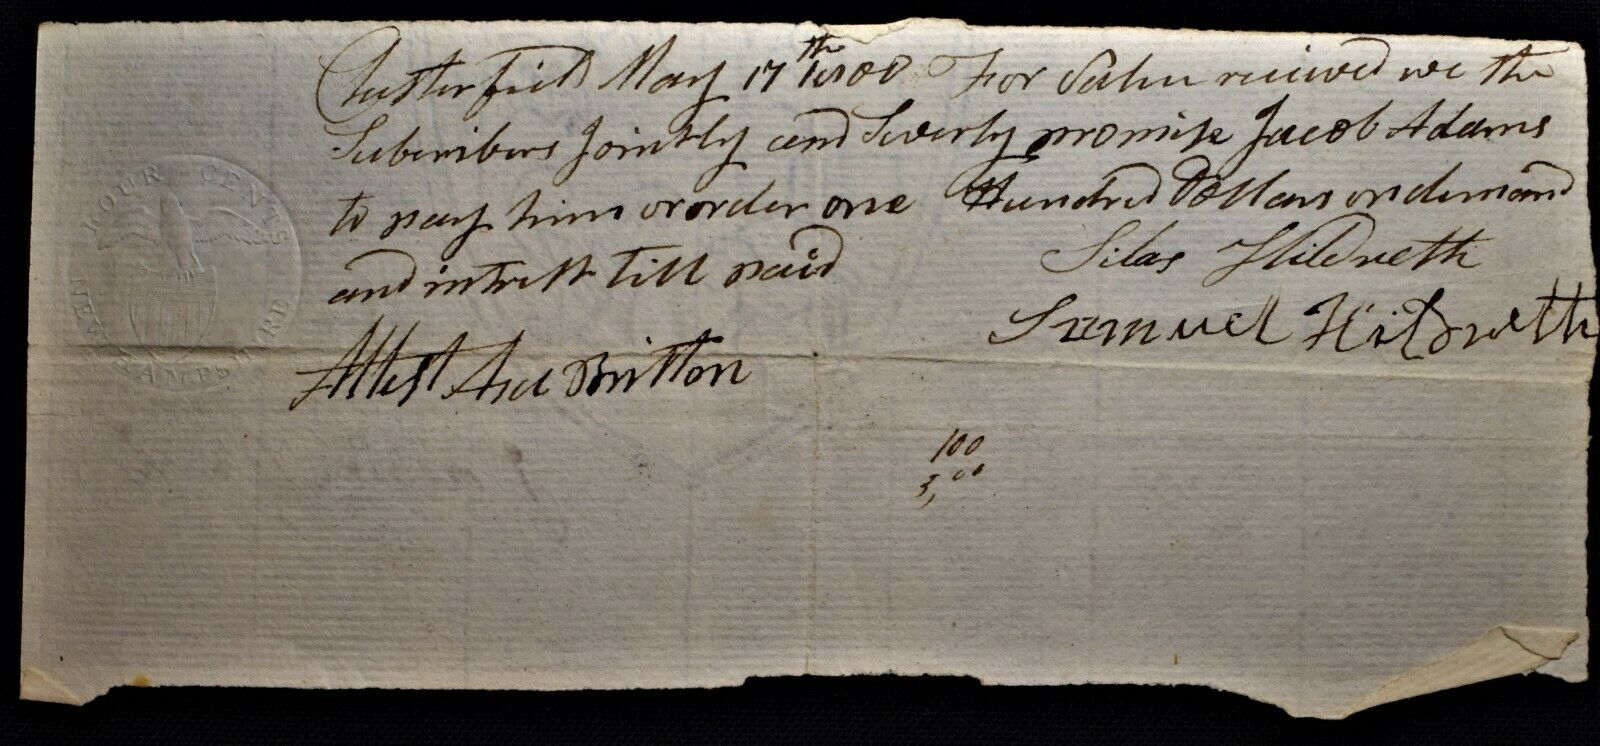 Chesterfield May 17th 1800 For Valu recieved we the
Subcribers Jointly and Severly promise Jacob Adams
to pay him or order one Hundred Dollars on demand
and intrest till paid
Silas Hildreth
Samuel Hildreth
Attest Asa Britton
100
3,00
FOUR CENTS
NEW HAMPSHIRE